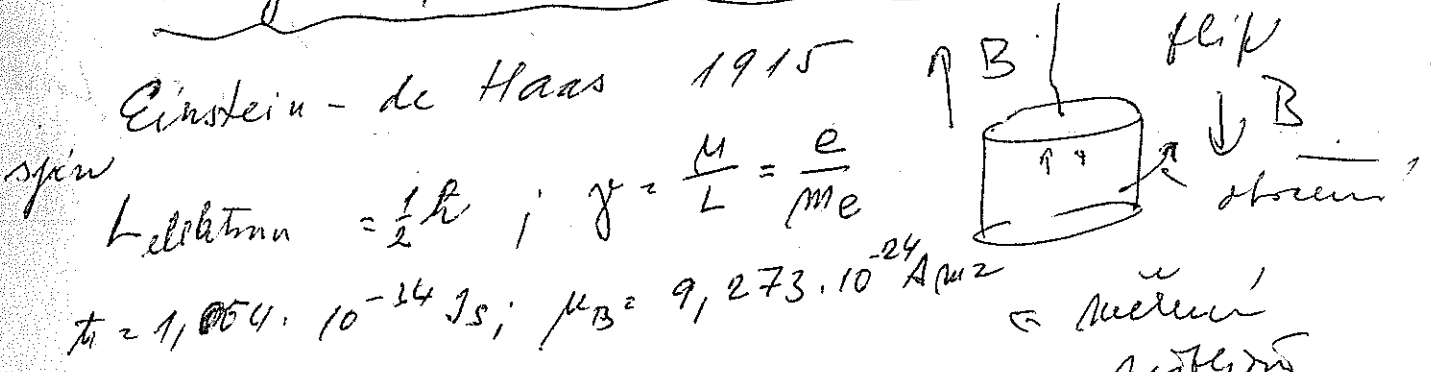 Einstein - de Haas 1915 ↑ B flip
spin ↓ B
L elektron = ½ ħ ; γ = μ/L = e/me
ħ = 1,054 · 10⁻³⁴ Js ; μB = 9,273 · 10⁻²⁴ Am²
měření